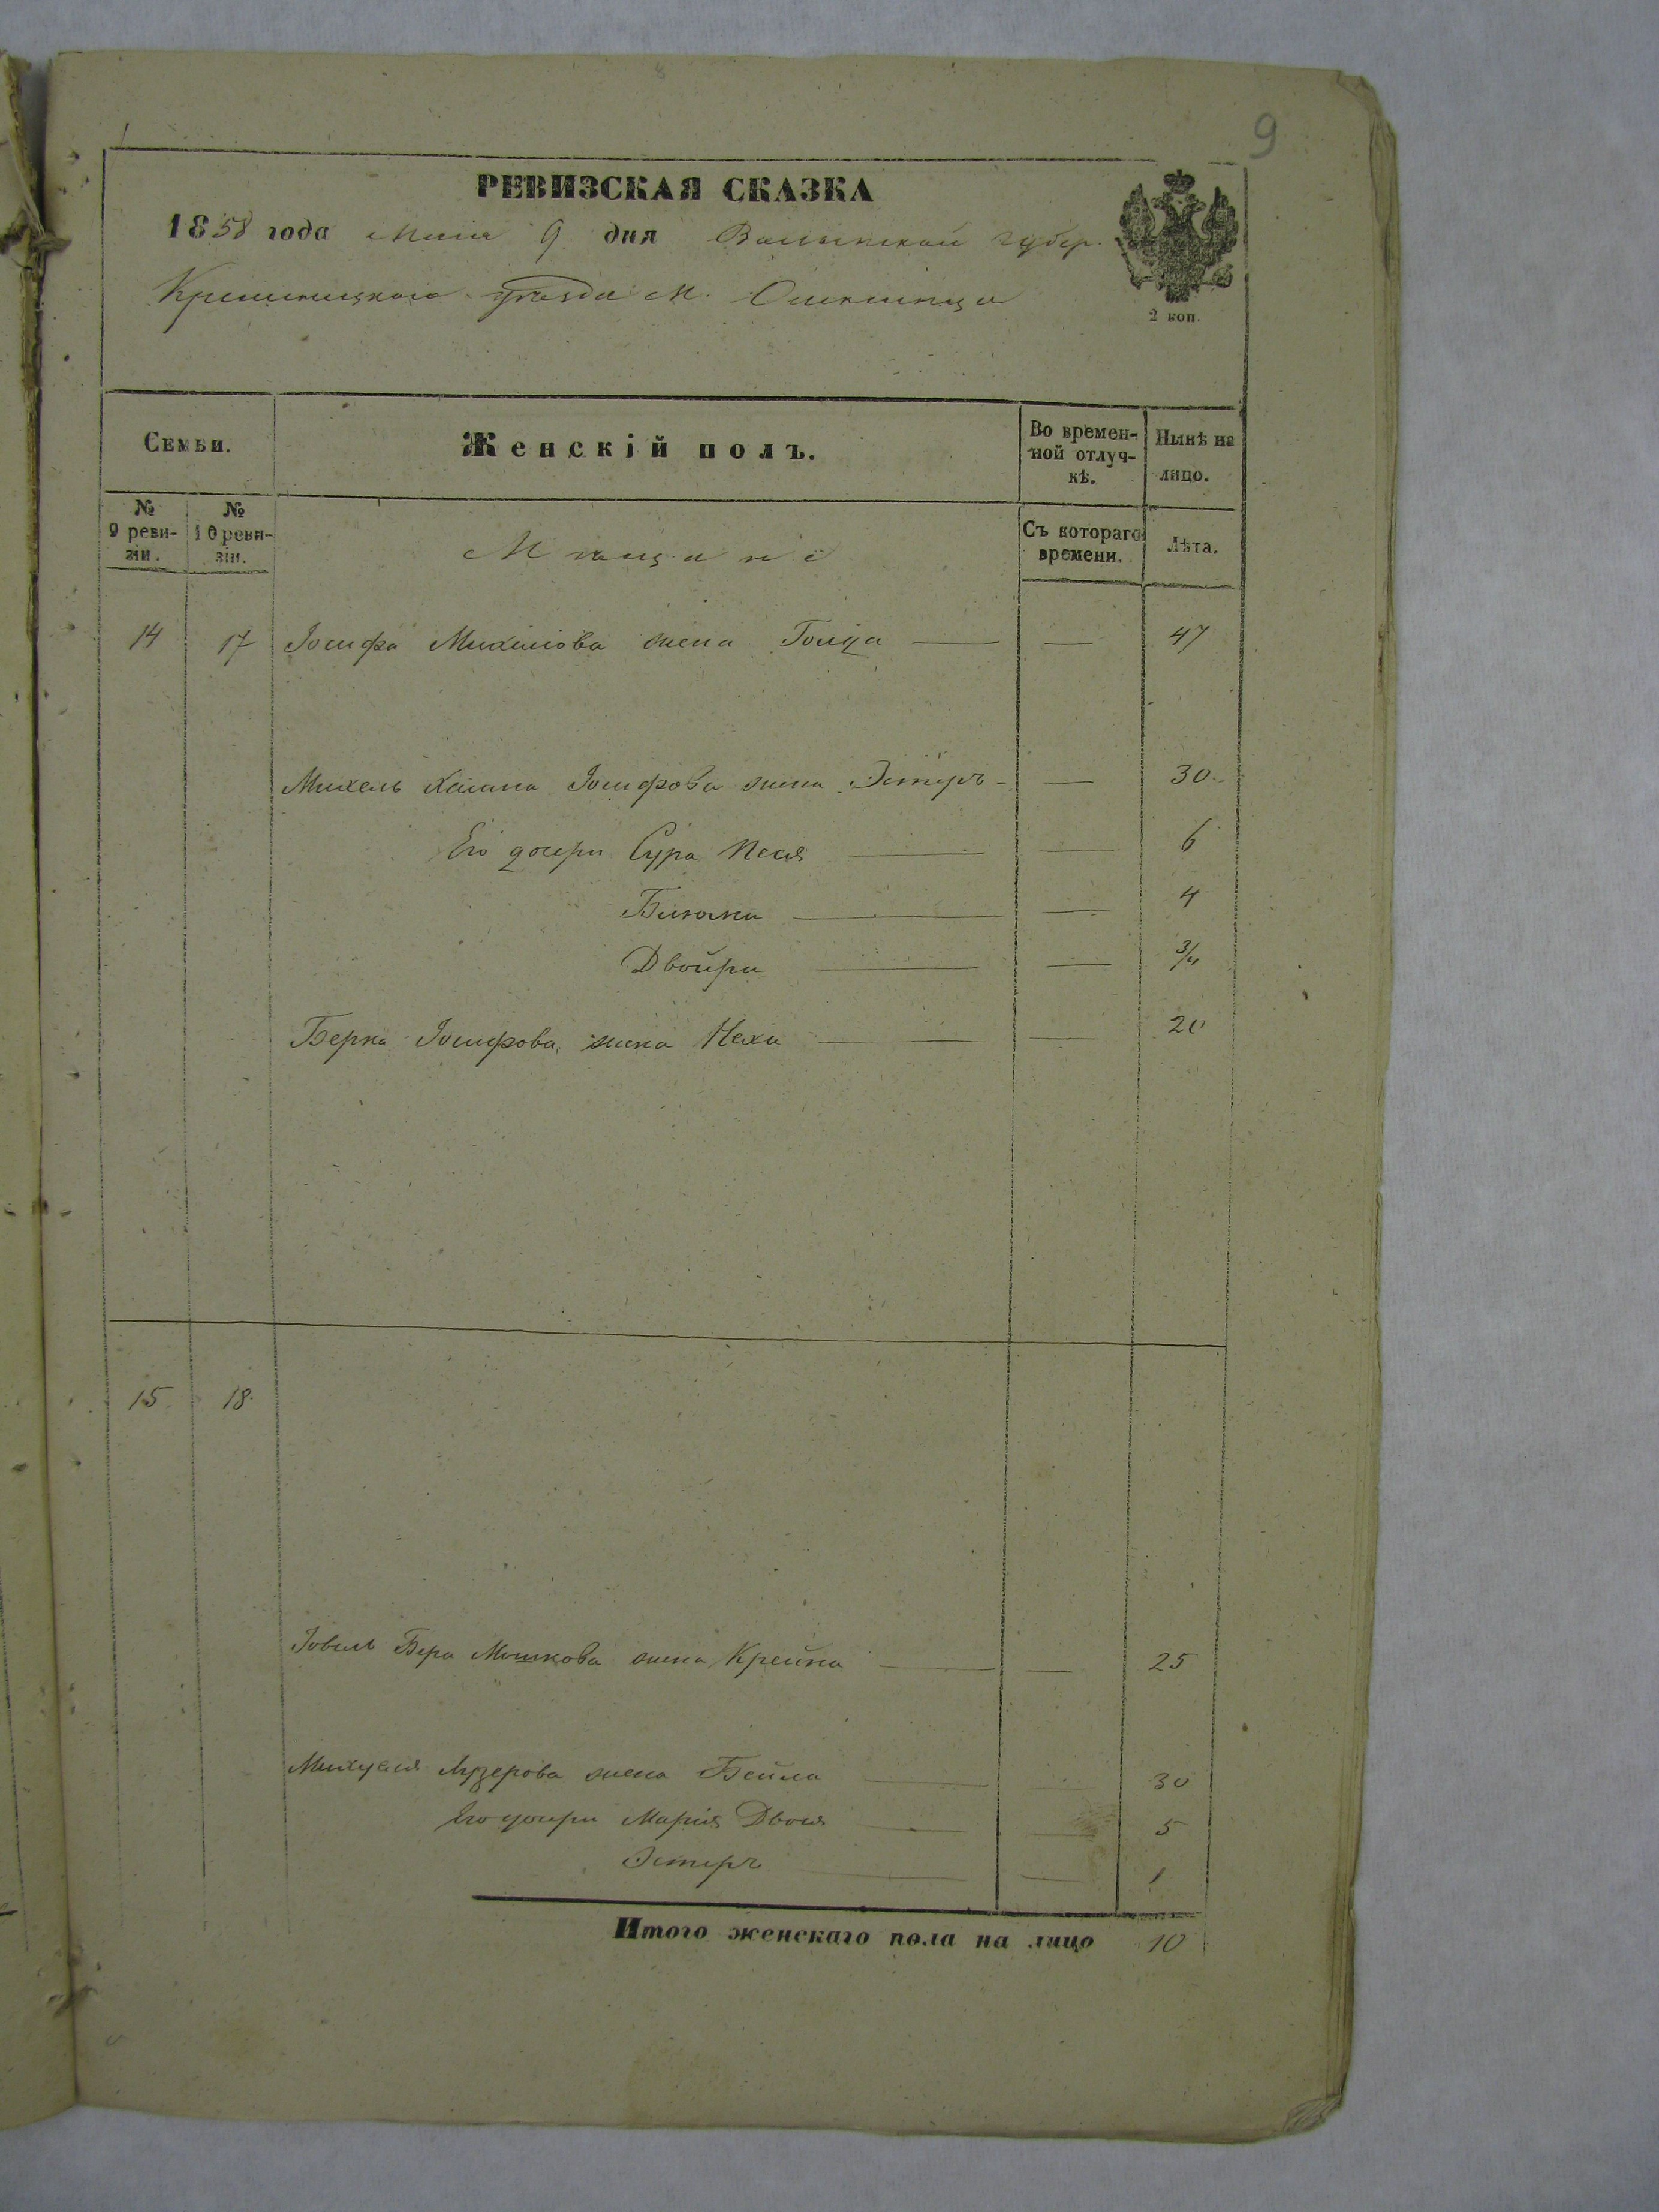 9
РЕВИЗСКАЯ СКАЗКА
1858 года Мая 9 дня Волынской губер.
Кременецкаго уезда М.
2 коп.
Семьи.
Женскій полъ.
Во времен-
ной отлуч-
кѣ.
Нынѣ на
лицо.
№
9 реви-
зіи.
№
10 реви-
зіи.
Мѣщане
Съ котораго
времени.
Лѣта.
14 17 Іосифа Михелова жена Голда — — 47
Михель Іосифова жена Эстеръ — — 30
Его дочери Сура Песя — — 6
— — 4
Двойра — — 3/4
Берка Іосифова жена Неха — — 20
15 18
Бера Мошкова жена Крейна — — 25
Лузерова жена Бейла — — 30
Его дочери Марія Двося — — 5
Эстеръ — — 1
Итого женскаго пола на лицо 10